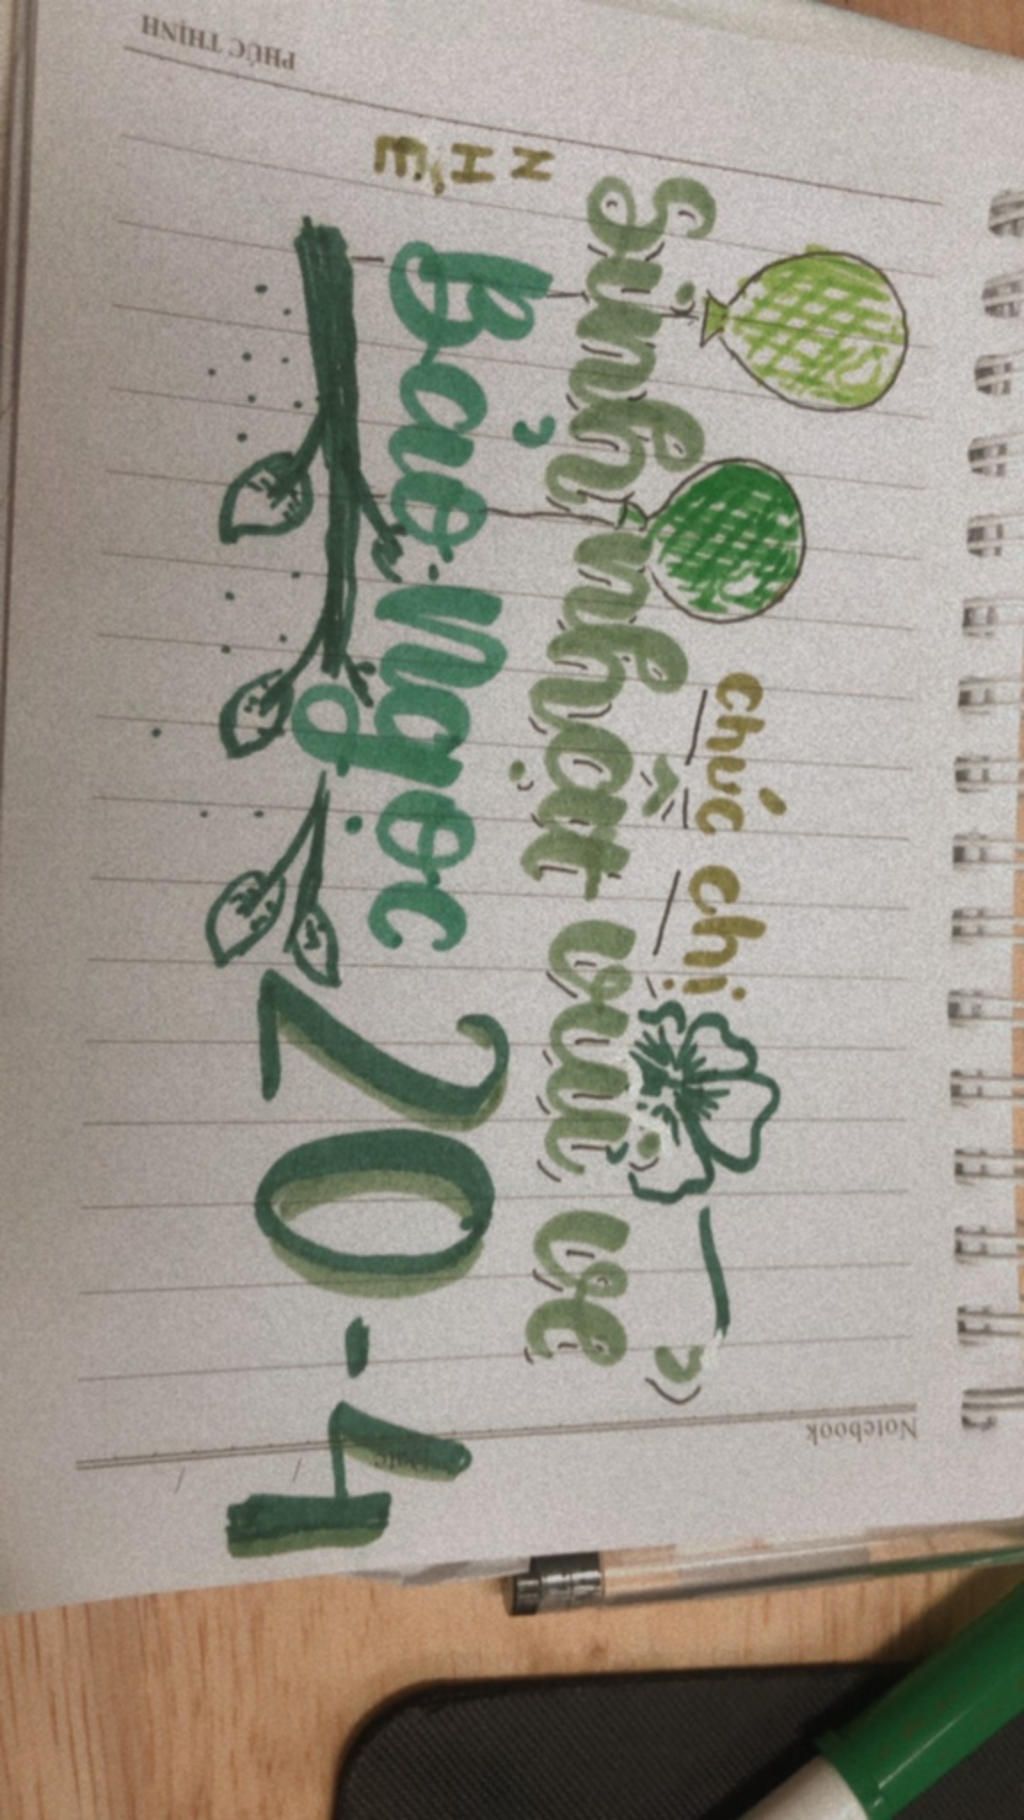 chúc chị
Sinh nhật vui vẻ
NHÉ
Bảo Ngọc
20-4
PHÚC THỊNH
Notebook
Date